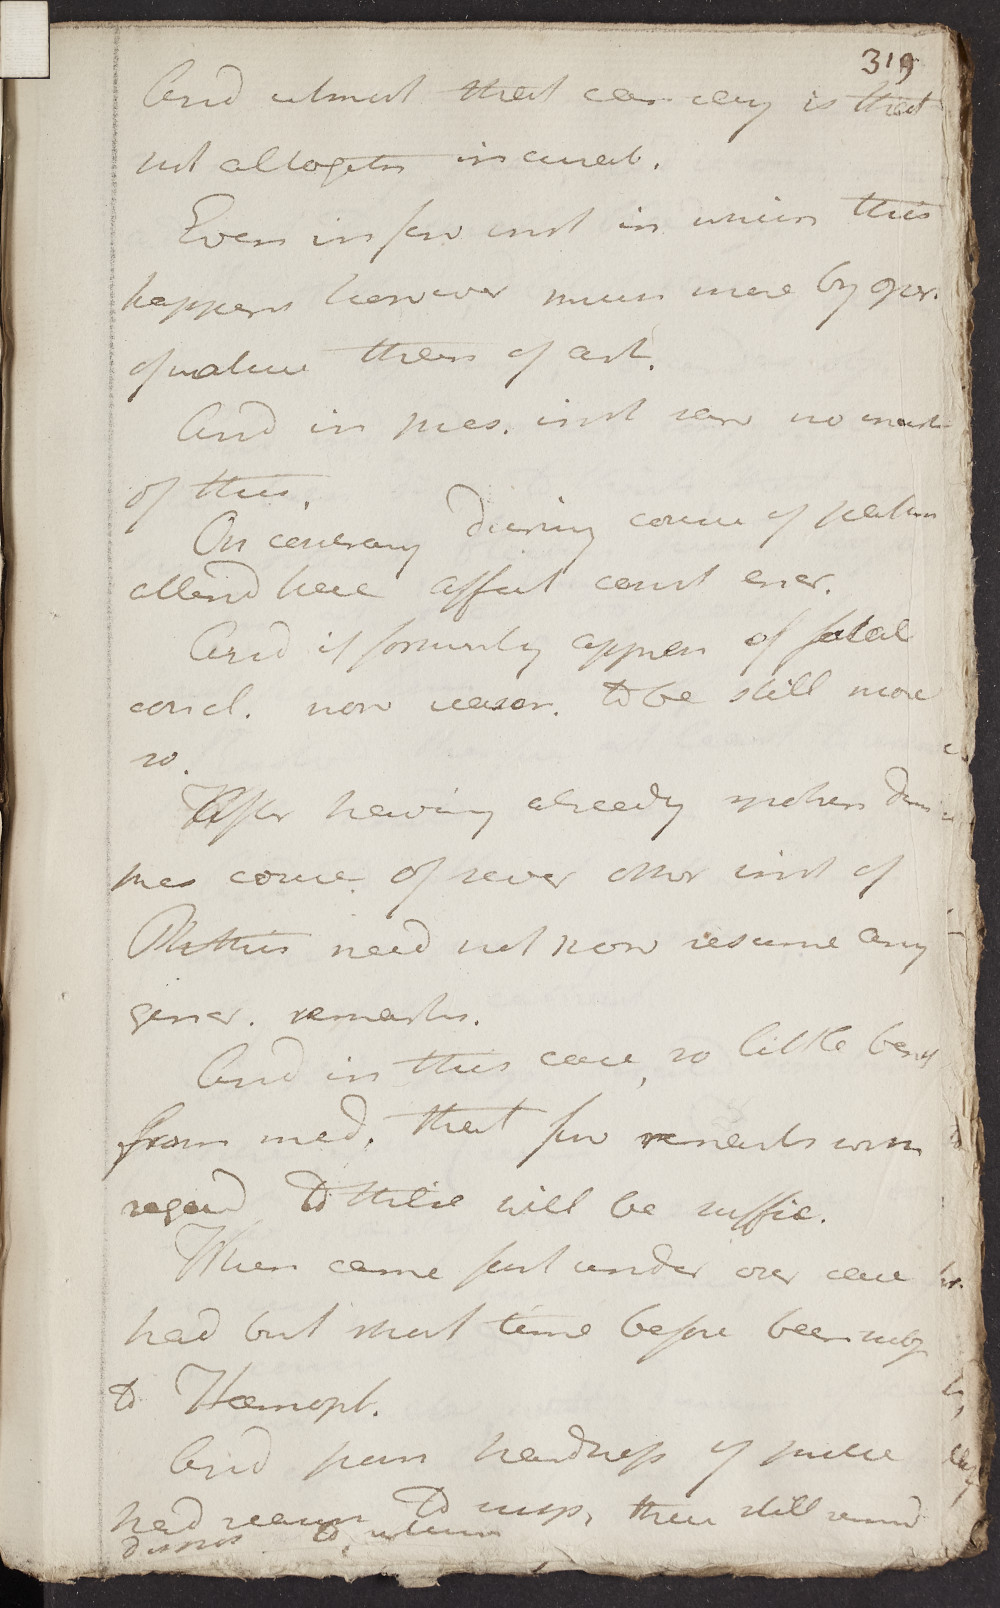 319
And utmost that can say is that
not altogether in curab.
Even in few inst in which this
happens however much more by oper.
of nature than of art.
And in pres. inst saw no mark
of this.
On contrary during course of patien
attend here affect const encr.
And if formerly appren of fatal
concl. now reason. to be still more
so.
After having already spoken durin
pres course of sever other inst of
Phthis need not now resume any
gener. remarks.
And in this case, so little benef
from med. that few remarks with
regard to these will be suffic.
When came first under our care
had but short time before been subj
to Hæmopt.
And from hardness of pulse
had reason to susp. there still remd
dispos to return